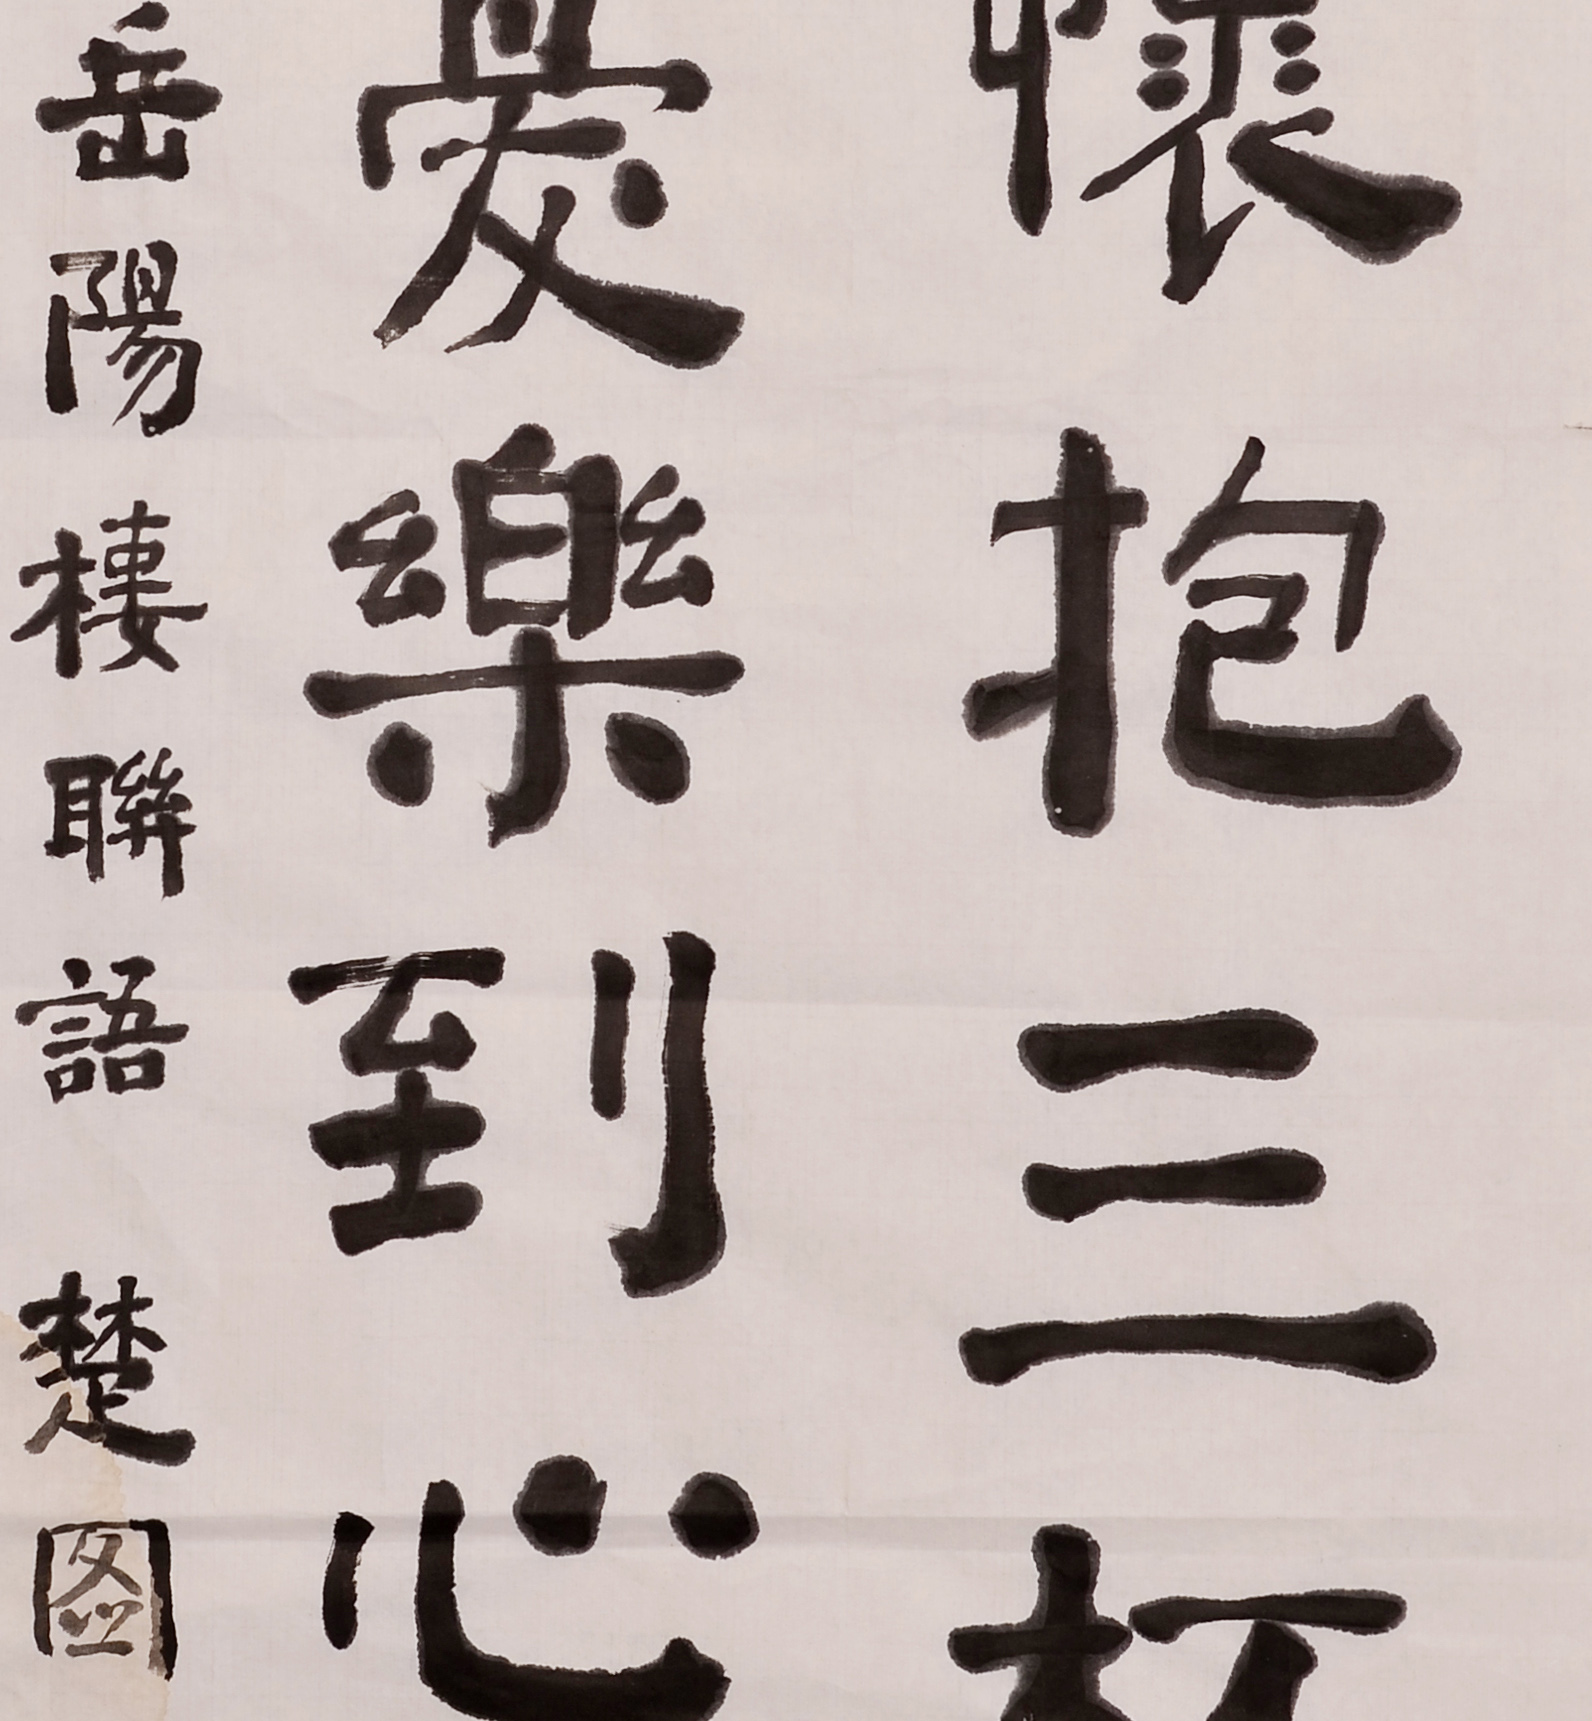 懷抱三杯
憂樂到心
岳陽樓聯語 楚图